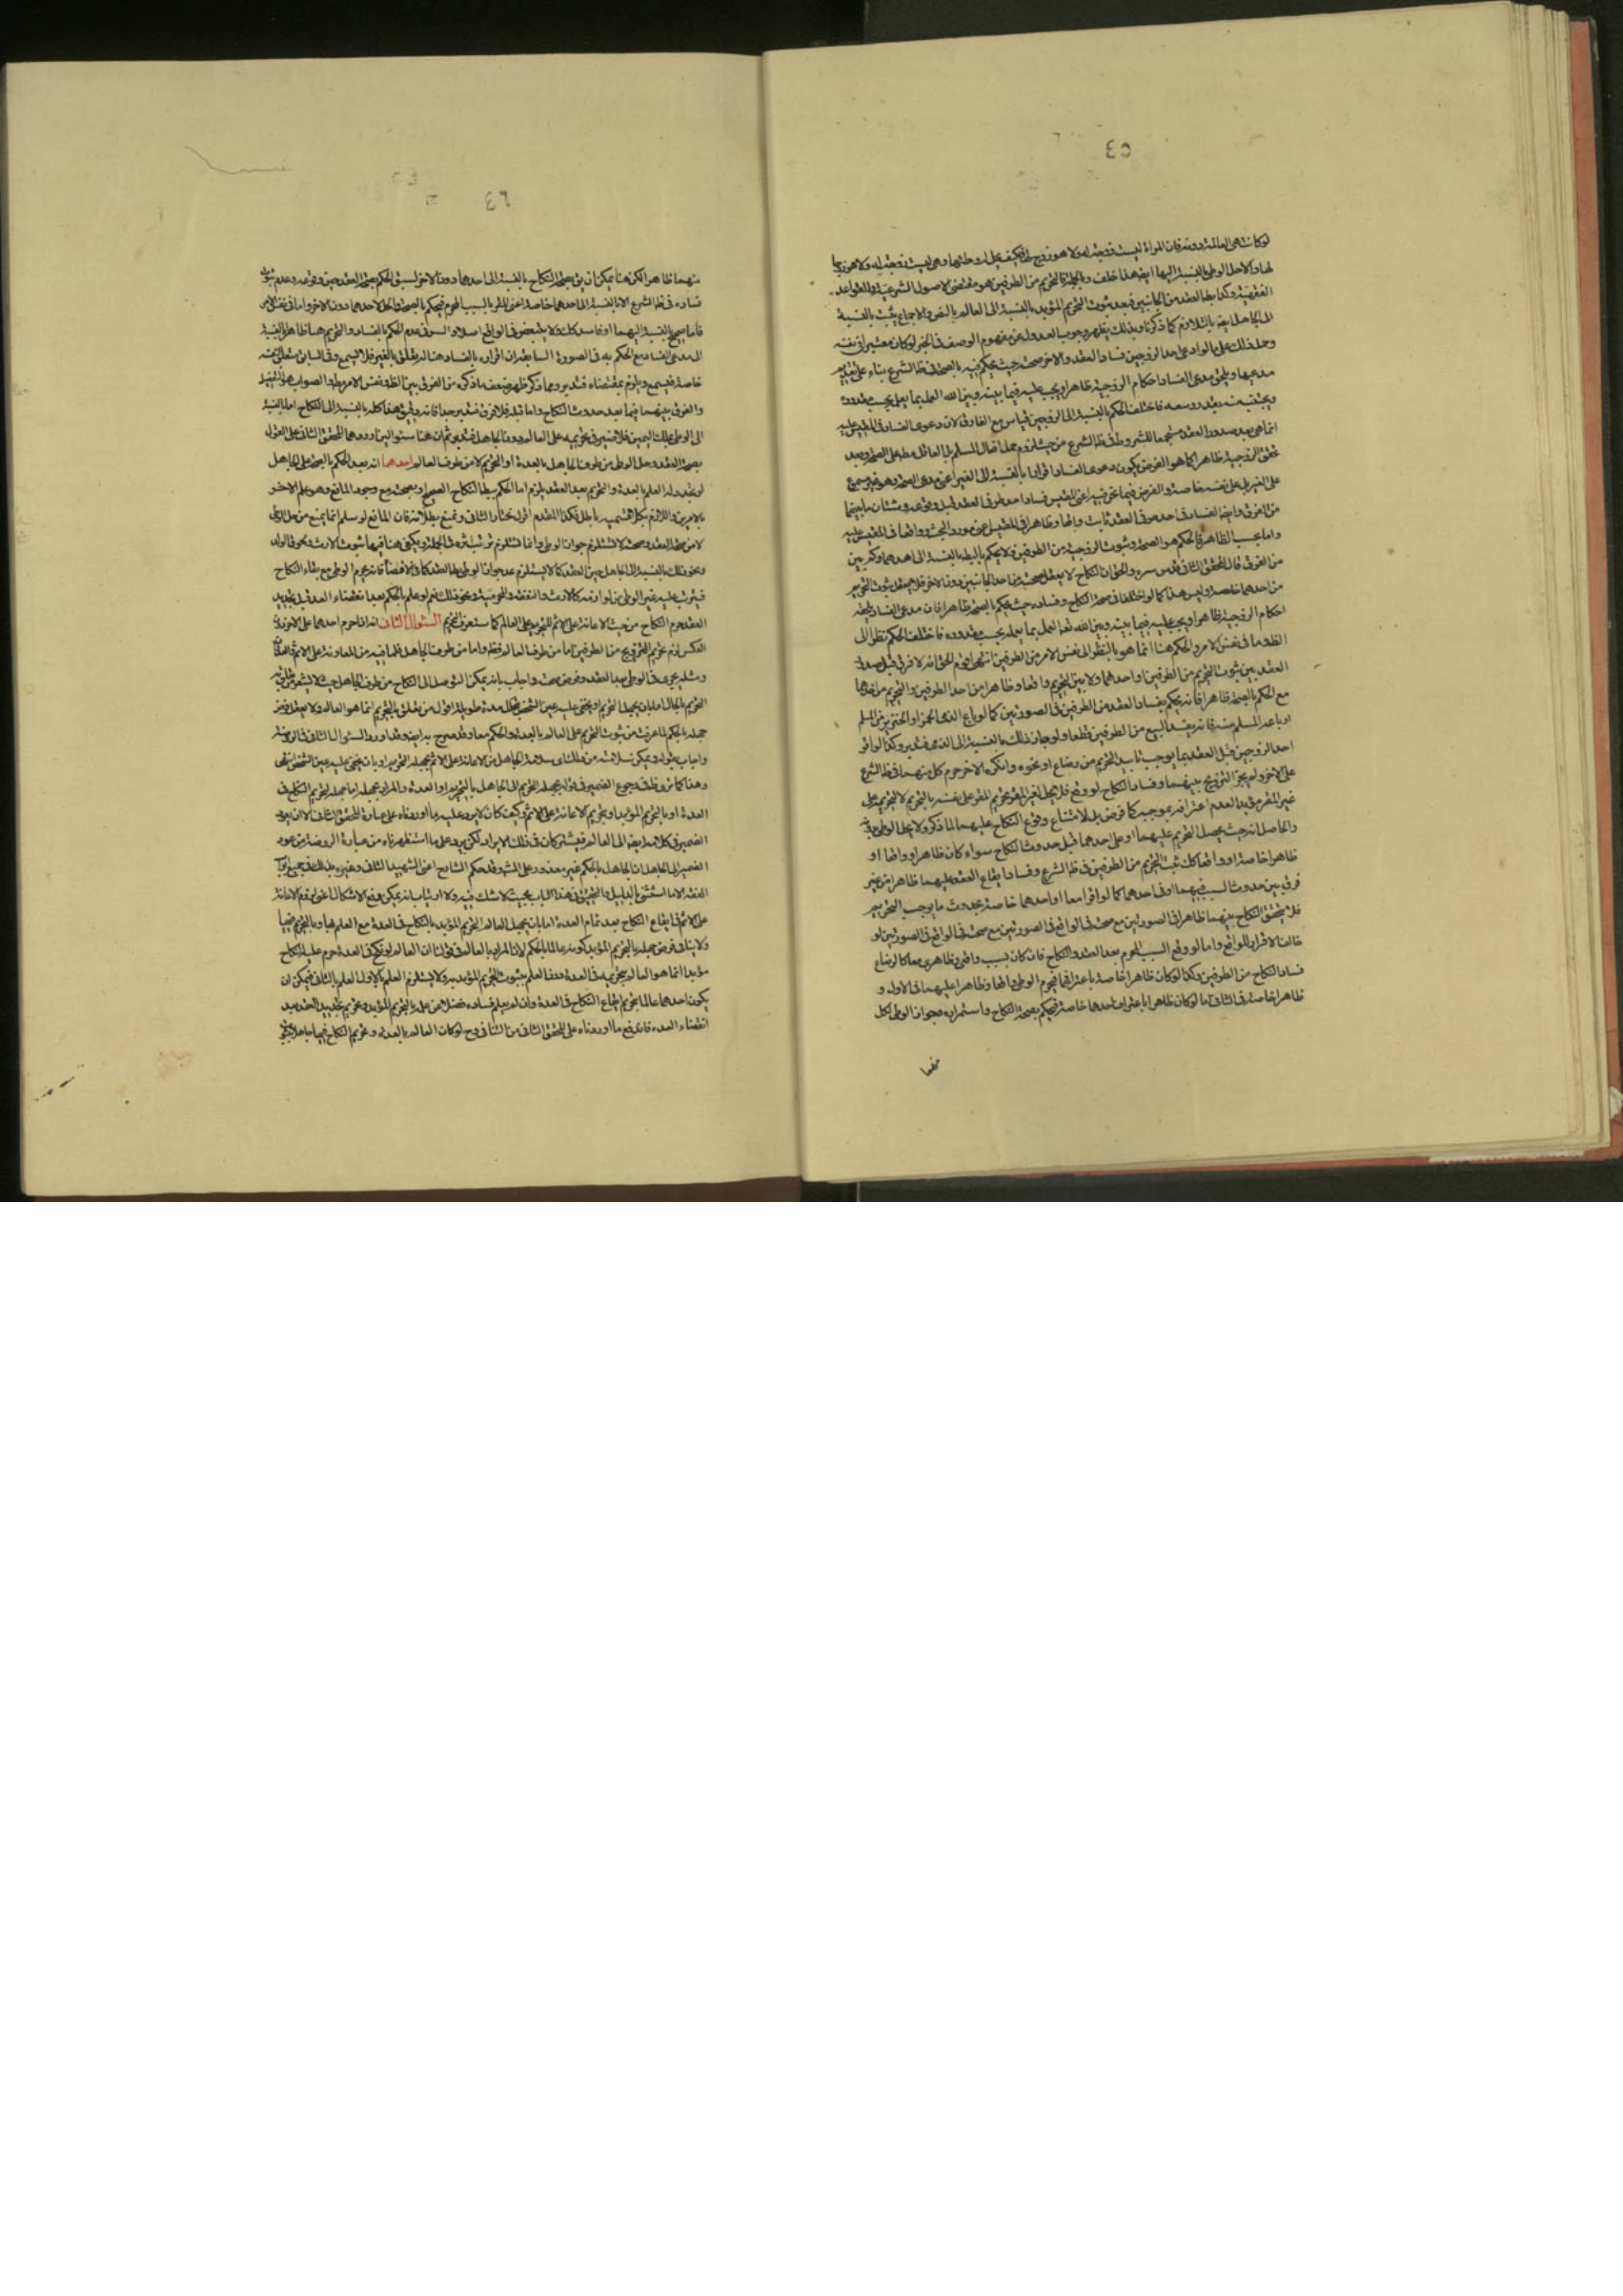 ٤٥
لو كانت هي العالمة دونه فان المراة ليست زوجة له ولا هو زوج لها فكيف يحل له وطئها وهي ليست زوجة له ولا هو زوجا
لها والاحل الوطى بالنسبة اليها ايضا هذا خلف وبالجملة فالتحريم من الطرفين هو مقتضى الاصول الشرعية والقواعد
الفقهية وكذا بطلا العقد من الجانبين فبعد ثبوت التحريم المؤبد بالنسبة الى العالم بالنص والاجماع يثبت بالنسبة
الى الجاهل ايضا بالتلازم كما ذكرنا وبذلك يظهر وجوب العدول عن مفهوم الوصف في الخبر لو كان معتبرا في نفسه
وحمل ذلك على ما لو ادعى احد الزوجين فساد العقد والاخر صحته حيث يحكم فيه بالصحة في ظ الشرع بناء على تقديم
مدعيها ويلحق مدعى الفساد احكام الزوجية ظاهرا ويجب عليه فيما بينه وبين الله العمل بما يعلم بحسب مقدوره
فاختلف الحكم بالنسبة الى الزوجين قياس مع الفارق لان دعوى الفساد في المقيس عليه
انما هي بعد صدور العقد مستجمعا للشروط في ظ الشرع من حيث لزوم حمل افعال المسلم بل العاقل مط على الصحة وبعد
تحقق الزوجية ظاهرا كما هو الفرض يكون دعوى الفساد اقرارا بالنسبة الى الغير اعنى مدعى الصحة وهو غير مسموع
على الغير بل على نفسه خاصة والفرض فيما نحن فيه اعنى المقيس فساد احد طرفى العقد قبل وقوعه وشتان ما بينهما
من الفرق وايضا الفساد في احد طرفى العقد ثابت واقعا وظاهرا في المقيس اعنى مورد البحث وواقعا في المقيس عليه
واما بحسب الظاهر فالحكم هو الصحة وثبوت الزوجية من الطرفين ولا يحكم بالبطلان بالنسبة الى احدهما وكم بين
من الفرق قال المحقق الثاني قدس سره والحق ان النكاح لا يعقل صحته من احد الجانبين دون الاخر فلا يعقل ثبوت التحريم
من احدهما خاصة وليس هذا كما لو اختلفا في صحة النكاح وفساده حيث يحكم بالصحة ظاهرا فان مدعى الفساد يلحقه
احكام الزوجية ظاهرا ويجب عليه فيما بينه وبين الله تعم العمل بما يعلمه بحسب مقدوره فاختلف الحكم نظرا الى
الظ وما في نفس الامر والحكم هنا انما هو بالنظر الى نفس الامر من الطرفين انتهى اقول الحق انه لا فرق قبل صدور
العقد بين ثبوت التحريم من الطرفين او احدهما ولا بين التحريم واقعا وظاهرا من احد الطرفين والتحريم من احدهما
مع الحكم بالصحة ظاهرا فانه يحكم بفساد العقد من الطرفين في الصورتين كما لو باع الذمى الخمر او الخنزير من المسلم
او باعه المسلم منه فانه يفسد البيع من الطرفين قطعا ولو جاز ذلك بالنسبة الى الذمى فتدبر وكذا لو اقر
احد الزوجين قبل العقد بما يوجب تابيد التحريم من رضاع او نحوه وانكره الاخر حرم كل منهما في ظ الشرع
على الاخر ولم يجز التزويج بينهما وفساد النكاح لو وقع
والحاصل انه حيث يحصل التحريم عليهما او على احدهما قبل حدوث النكاح سواء كان ظاهرا وواقعا او
ظاهرا خاصة او واقعا كك ثبت التحريم من الطرفين في ظ الشرع وفساد ايقاع العقد عليهما ظاهرا من غير
فرق بين حدوث السبب فيهما او في احدهما كما لو اقرا معا او احدهما خاصة بحدوث ما يوجب التحريم
فلا يتحقق النكاح بينهما ظاهرا في الصورتين مع صحته في الواقع في الصورتين لو
خالف الاقرار الواقع واما لو وقع السبب المحرم بعد العقد والنكاح فان كان بسبب واقعى وظاهرى معا كالرضاع
فساد النكاح من الطرفين وكذا لو كان ظاهرا خاصة باعترافهما فيحرم الوطى واقعا وظاهرا عليهما في الاول و
ظاهرا خاصة في الثانى اما لو كان ظاهرا باعتراف احدهما خاصة فيحكم بصحة النكاح واستمراره وجواز الوطى لكل
منهما
٤٦
منهما ظاهرا لكن هنا يمكن ان يق بصحة النكاح بالنسبة الى احدهما دون الاخر لسبق الحكم بصحة العقد حين وقوعه وعدم ثبوت
فساده في ظ الشرع الا بالنسبة الى احدهما خاصة اعنى المقر بالسبب المحرم فيحكم بالصحة والحل لاحدهما دون الاخر واما في نفس الامر
فاما صحيح بالنسبة اليهما او فاسد كك ولا يتبعض في الواقع اصلا والسر في عدم الحكم بالفساد والتحريم هنا ظاهرا بالنسبة
الى مدعى الفساد مع الحكم به في الصورة السابقة ان اقراره بالفساد هنا لم يتعلق بالغير فلا يسمع وفي السابق متعلق بنفسه
خاصة فيسمع ويلزم بمقتضاه فتدبر ومما ذكر ظهر ضعف ما ذكره من الفرق بين الظ ونفس الامر
والفرق بينهما فيما بعد حدوث النكاح واما قبله فلا فرق فتدبر جدا فانه دقيق هذا كله بالنسبة الى النكاح اما بالنسبة
الى الوطى بملك اليمين فلا ضير في تحريمه على العالم دون الجاهل فتدبر ثم ان هنا سئوالين اوردهما المحقق الثاني على القول
بصحة العقد وحل الوطى من طرف الجاهل بالعدة او التحريم لا من طرف العالم احدهما انه بعد الحكم بالصحة على الجاهل
لو تجدد له العلم بالعدة والتحريم بعد العقد يلزم اما الحكم ببطلا النكاح الصحيح او بصحته مع وجود المانع وهو علم الاخر
بالامرين واللازم بكلا قسميه باطل فكذا المقدم اقول نختار الثانى ونمنع بطلانه فان المانع لو سلم انما يمنع من حل الوطى
لا من صحة العقد وصحته لا تستلزم جواز الوطى وانما تستلزم ترتب اثره في الجملة ويكفى هنا فيها ثبوت الارث ولحوق الولد
ونحو ذلك بالنسبة الى الجاهل حين العقد كما لا يستلزم عدم جواز الوطى بطلا العقد كما في الافضاء فانه يحرم الوطى مع بقاء النكاح
فيترتب عليه غير الوطى من لوازمه كالارث والنفقة والمحرمية ونحو ذلك نعم لو علم بالحكم بعد انقضاء العدة قبل تجديد
العقد حرم النكاح من حيث الاعانة على الاثم للتحريم على العالم كما ستعرف التحريم السئوال الثانى انه اذا حرم احدهما على الاخر دون
العكس لزم تحريم التزويج من الطرفين اما من طرف العالم فظ واما من طرف الجاهل فلما فيه من المعاونة على الاثم والعدوان
ومثله يجرى في الوطى بعد العقد وفرض صحته واجاب بانه يمكن التوصل الى النكاح من طرف الجاهل حيث لا يشعر من تعلق به
التحريم بالحال اما بان يجهل التحريم او يخفى عليه عين الشخص لتخلل مدة طويلة اقول من تعلق به التحريم انما هو العالم ولا يعقل فرض
جهله بالحكم لما عرفت من ثبوت التحريم على العالم بالعدة والحكم معا وقد صرح به ايضا وقد اورد السئوال الثانى في الروضة
واجاب بقوله ويمكن سلامته من ذلك اى سلامة الجاهل من الاعانة على الاثم بجهله التحريم او بان يخفى عليه عين الشخص انتهى
وهذا كما ترى ظ في رجوع الضمير في قوله بجهله التحريم الى الجاهل بالتحريم او العدة والمراد بجهله اما جهله تحريم النكاح في
العدة او بالتحريم المؤبد او بتحريم الاعانة على الاثم وكيف كان لا يرد عليه ما اوردناه على عبارة المحقق الثانى الا ان يعود
الضمير في كلامه ايضا الى العالم فيشتركان في ذلك الايراد لكن يرد على ما استظهرناه من عبارة الروضة من عود
الضمير الى الجاهل ان الجاهل بالحكم غير معذور وعلى الشهو قد حكم الشارح اعنى الشهيد الثانى وغيره بذلك في جميع ابواب
الفقه الا ما استثنى بالدليل والتحقيق في هذا الباب بحيث لا شك فيه ولا ارتياب انه يمكن دفع الاشكال اعنى لزوم الاعانة
على الاثم في ايقاع النكاح بعد تمام العدة اما بان يجهل العالم التحريم المؤبد بالنكاح في العدة مع العلم بها وبالتحريم فيها
ولا ينافى فرض جهله بالتحريم المؤبد كونه عالما بالحكم لان المراد بالعالم في قولنا ان العالم لو نكح في العدة حرم عليه النكاح
مؤبدا انما هو العالم بتحريمه في العدة دون العلم بثبوت التحريم المؤبد به ولا يستلزم العلم بالاول العلم بالثانى فيمكن ان
يكون احدهما عالما بتحريم ايقاع النكاح في العدة وان لم يعلم فساده فضلا عن علمه بالتحريم المؤبد وتحريم تجديد العقد بعد
انقضاء العدة فاندفع ما اوردناه على المحقق الثانى من التنافى وح لو كان العالم بالعدة وتحريم النكاح فيها جاهلا